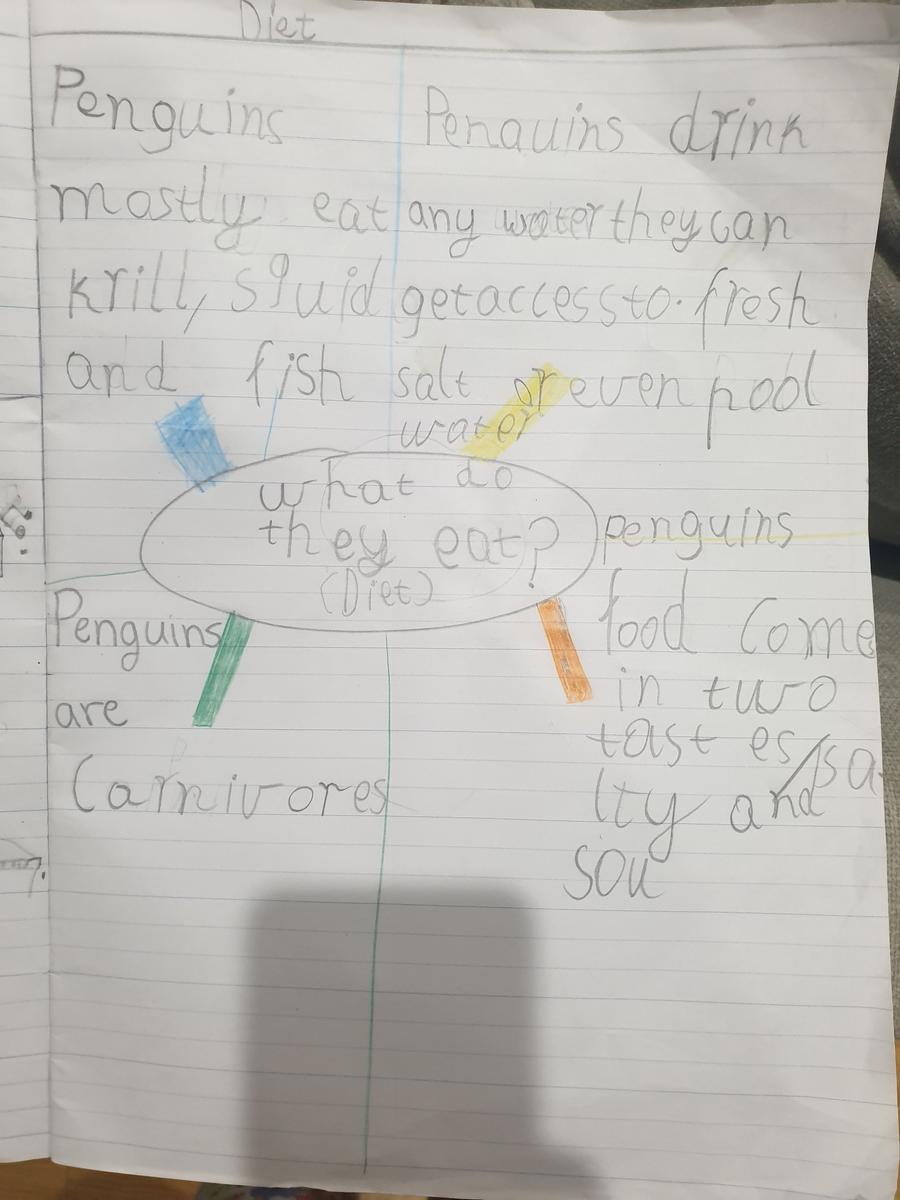 Diet
Penguins
mostly eat
krill, squid
and fish
Penguins drink
any water they can
get access to. fresh
salt or even pool
water
what do
they eat?
(Diet)
Penguins
are
Carnivores
penguins
food come
in two
tastes/sa
lty and
sou